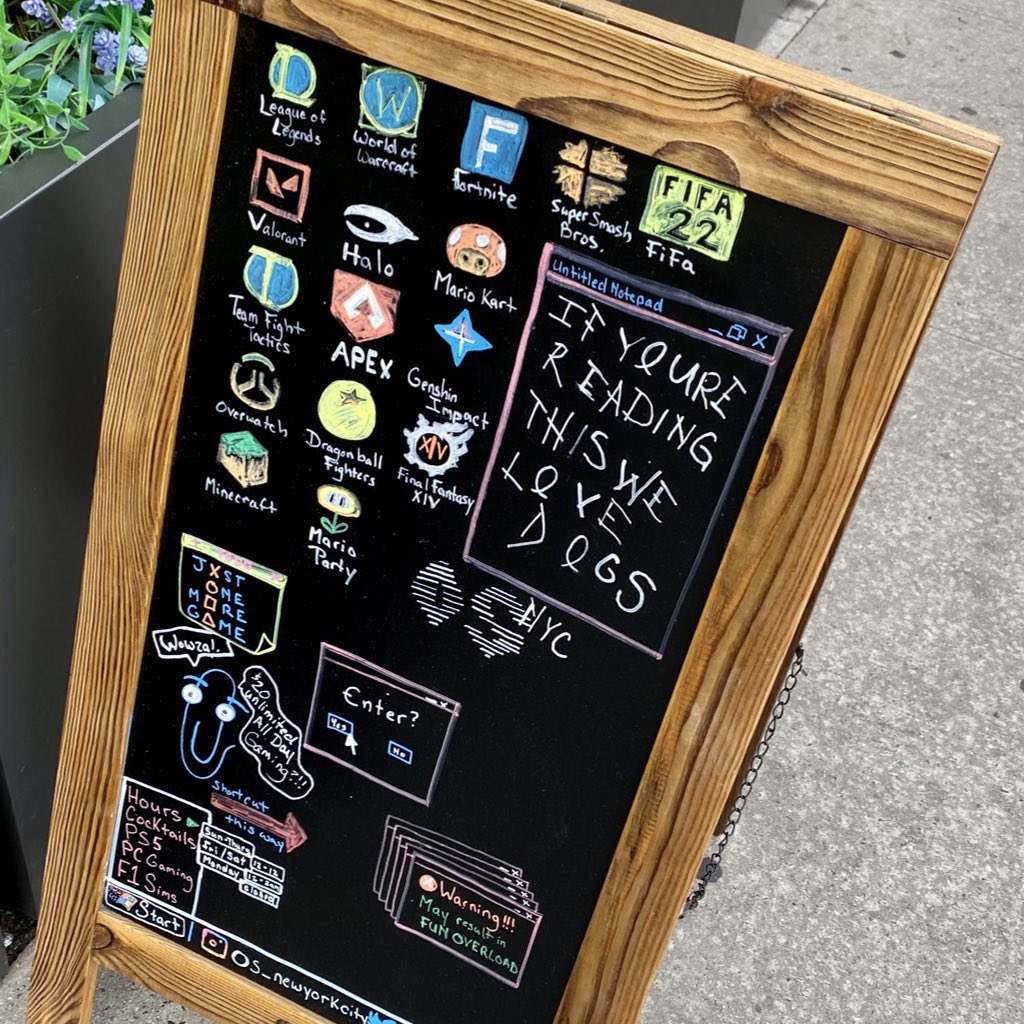 League of
Legends
W
World of
Warcraft
F
Fortnite
Super Smash
Bros.
FIFA
22
FiFa
Valorant
Halo
Mario Kart
T
Team Fight
Tactics
APEX
Genshin
Impact
Overwatch
Dragonball
Fighters
XIV
Final Fantasy
XIV
Minecraft
Mario
Party
Untitled Notepad
IF YOURE
READING
THIS WE
LOVE
DOGS
OS NYC
JXST
ONE
M□RE
G△ME
Wowza!
$20
unlimited
All Day
Gaming?!!
Enter?
Yes
No
shortcut
this way
Hours
Cocktails
PS5
PC Gaming
F1 Sims
Start
Sun-Thurs 12-12
Fri/Sat 12-2am
Monday closed
Warning!!!
May result in
FUN OVERLOAD
OS_newyorkcity